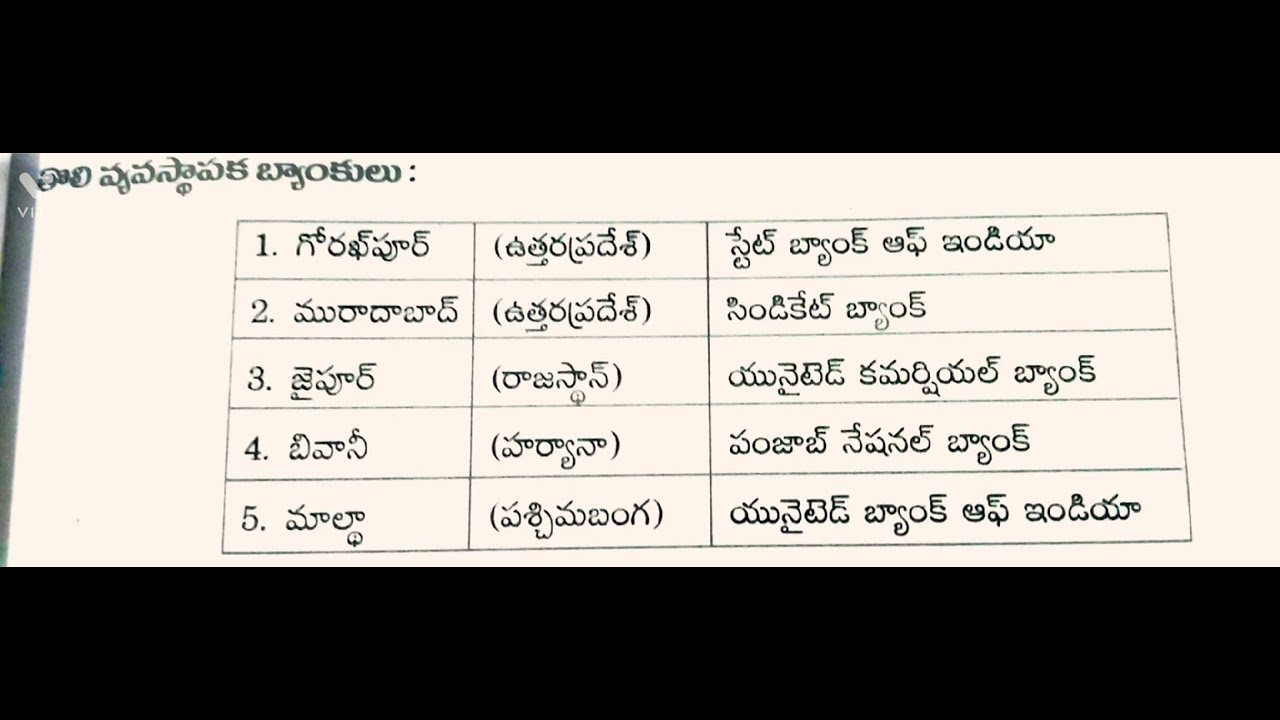 తొలి వ్యవస్థాపక బ్యాంకులు :
1. గోరఖ్‌పూర్ (ఉత్తరప్రదేశ్) స్టేట్ బ్యాంక్ ఆఫ్ ఇండియా
2. మురాదాబాద్ (ఉత్తరప్రదేశ్) సిండికేట్ బ్యాంక్
3. జైపూర్ (రాజస్థాన్) యునైటెడ్ కమర్షియల్ బ్యాంక్
4. బివానీ (హర్యానా) పంజాబ్ నేషనల్ బ్యాంక్
5. మాల్థా (పశ్చిమబంగ) యునైటెడ్ బ్యాంక్ ఆఫ్ ఇండియా